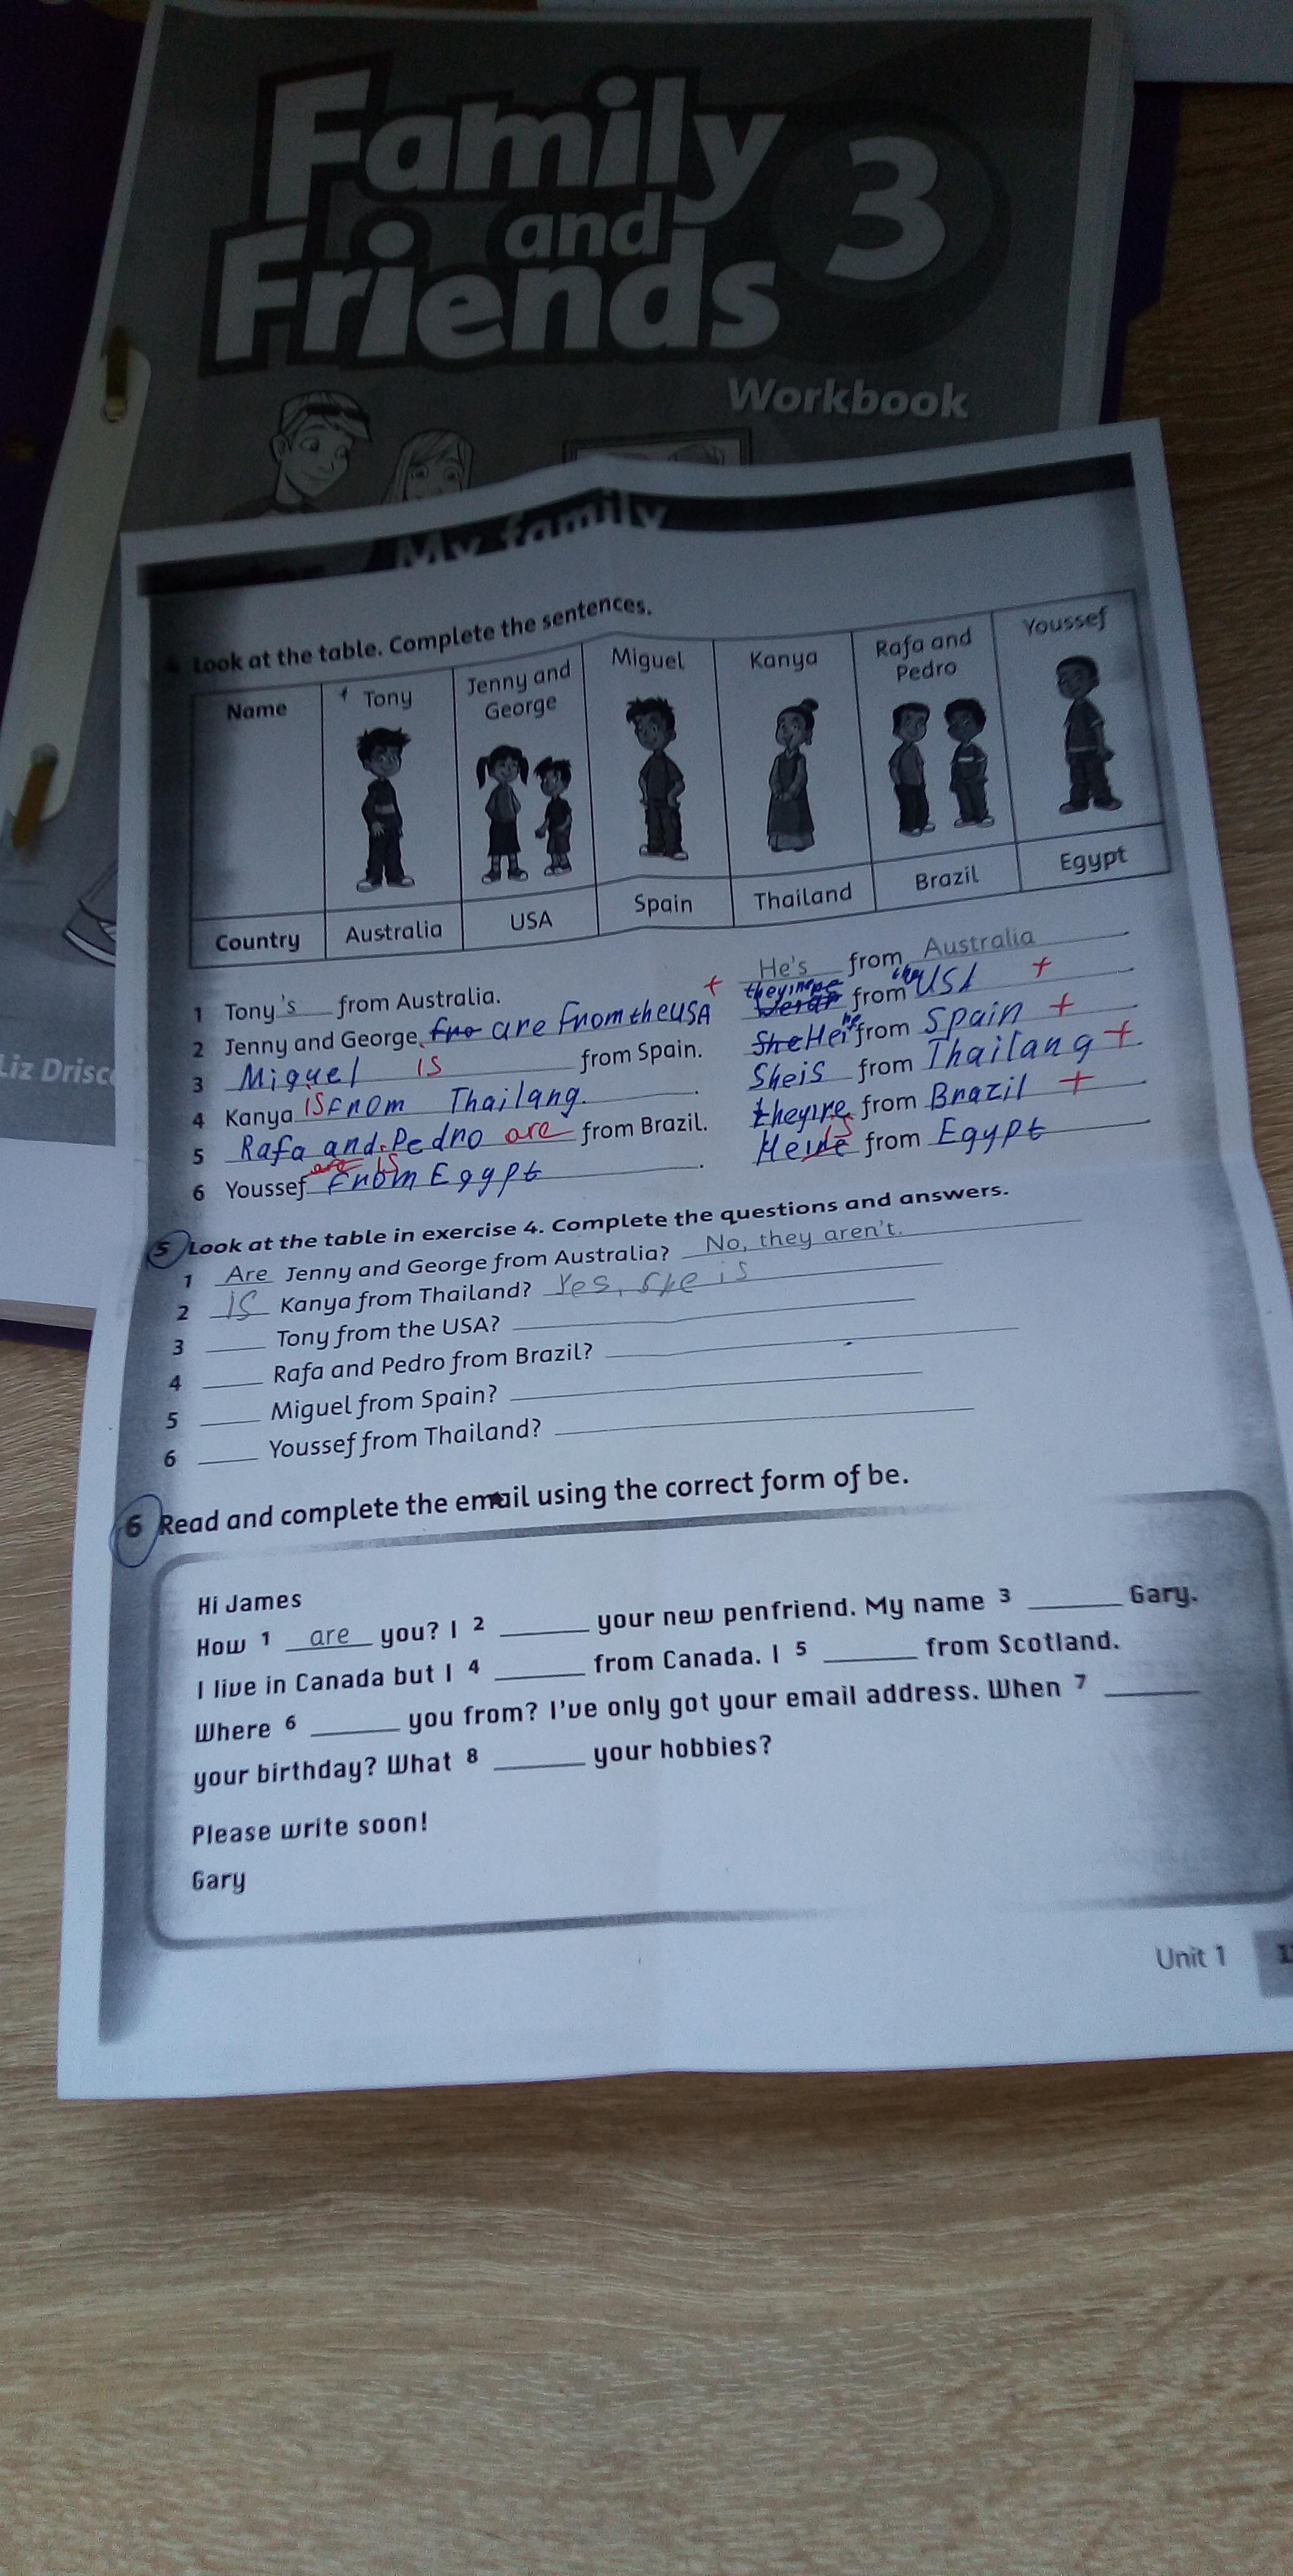 Family
and
Friends 3
Workbook
Liz Drisc
My family
Look at the table. Complete the sentences.
Name Tony Jenny and George Miguel Kanya Rafa and Pedro Youssef
Country Australia USA Spain Thailand Brazil Egypt
1 Tony's from Australia. He's from Australia
2 Jenny and George are from the USA + from the USA +
3 Miguel is from Spain. She He is from Spain +
4 Kanya is from Thailang. She is from Thailang +
5 Rafa and Pedro are from Brazil. they're from Brazil +
6 Youssef are is from Egypt. He is from Egypt
5 Look at the table in exercise 4. Complete the questions and answers.
1 Are Jenny and George from Australia? No, they aren't.
2 is Kanya from Thailand? Yes, she is
3 Tony from the USA?
4 Rafa and Pedro from Brazil?
5 Miguel from Spain?
6 Youssef from Thailand?
6 Read and complete the email using the correct form of be.
Hi James
How 1 are you? I 2 your new penfriend. My name 3 Gary.
I live in Canada but I 4 from Canada. I 5 from Scotland.
Where 6 you from? I've only got your email address. When 7
your birthday? What 8 your hobbies?
Please write soon!
Gary
Unit 1